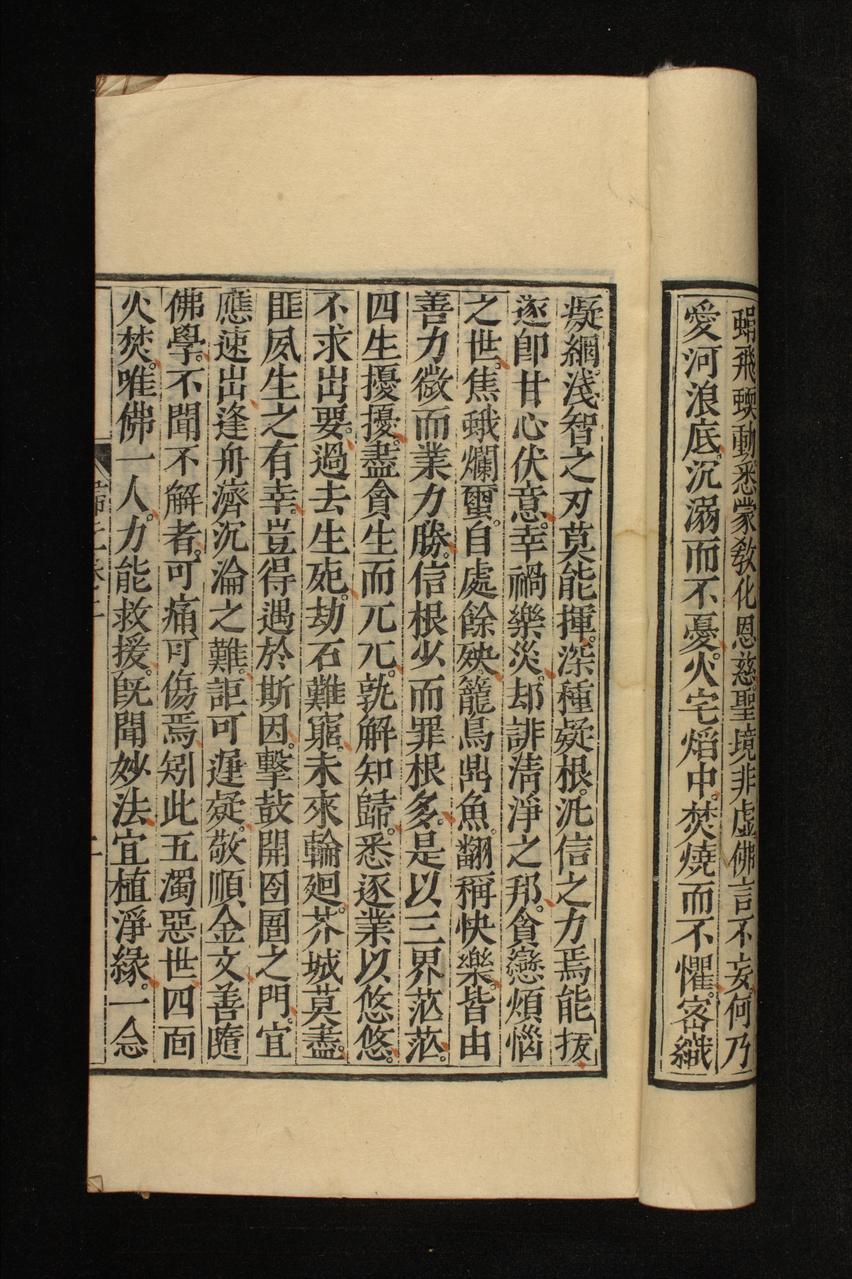 蜎飛蝡動。悉蒙教化恩慈。聖境非虛。佛言不妄。何乃
愛河浪底。沉溺而不憂。火宅焰中。焚燒而不懼。密織
癡網。淺智之刃莫能揮。深種疑根。汎信之力焉能拔。
遂即甘心伏意。幸禍樂災。却誹清淨之邦。貪戀煩惱
之世。焦蛾爛蠒。自處餘殃。籠鳥鼎魚。翻稱快樂。皆由
善力微而業力勝。信根少而罪根多。是以三界茫茫。
四生擾擾。盡貪生而兀兀。孰解知歸。悉逐業以悠悠。
不求出要。過去生死。劫石難窮。未來輪廻。芥城莫盡。
匪夙生之有幸。豈得遇於斯因。擊鼓開囹圄之門。宜
應速出。逢舟濟沉淪之難。詎可遲疑。敬順金文。善隨
佛學。不聞不解者。可痛可傷焉。矧此五濁惡世。四面
火焚。唯佛一人。力能救援。旣聞妙法。宜植淨緣。一念